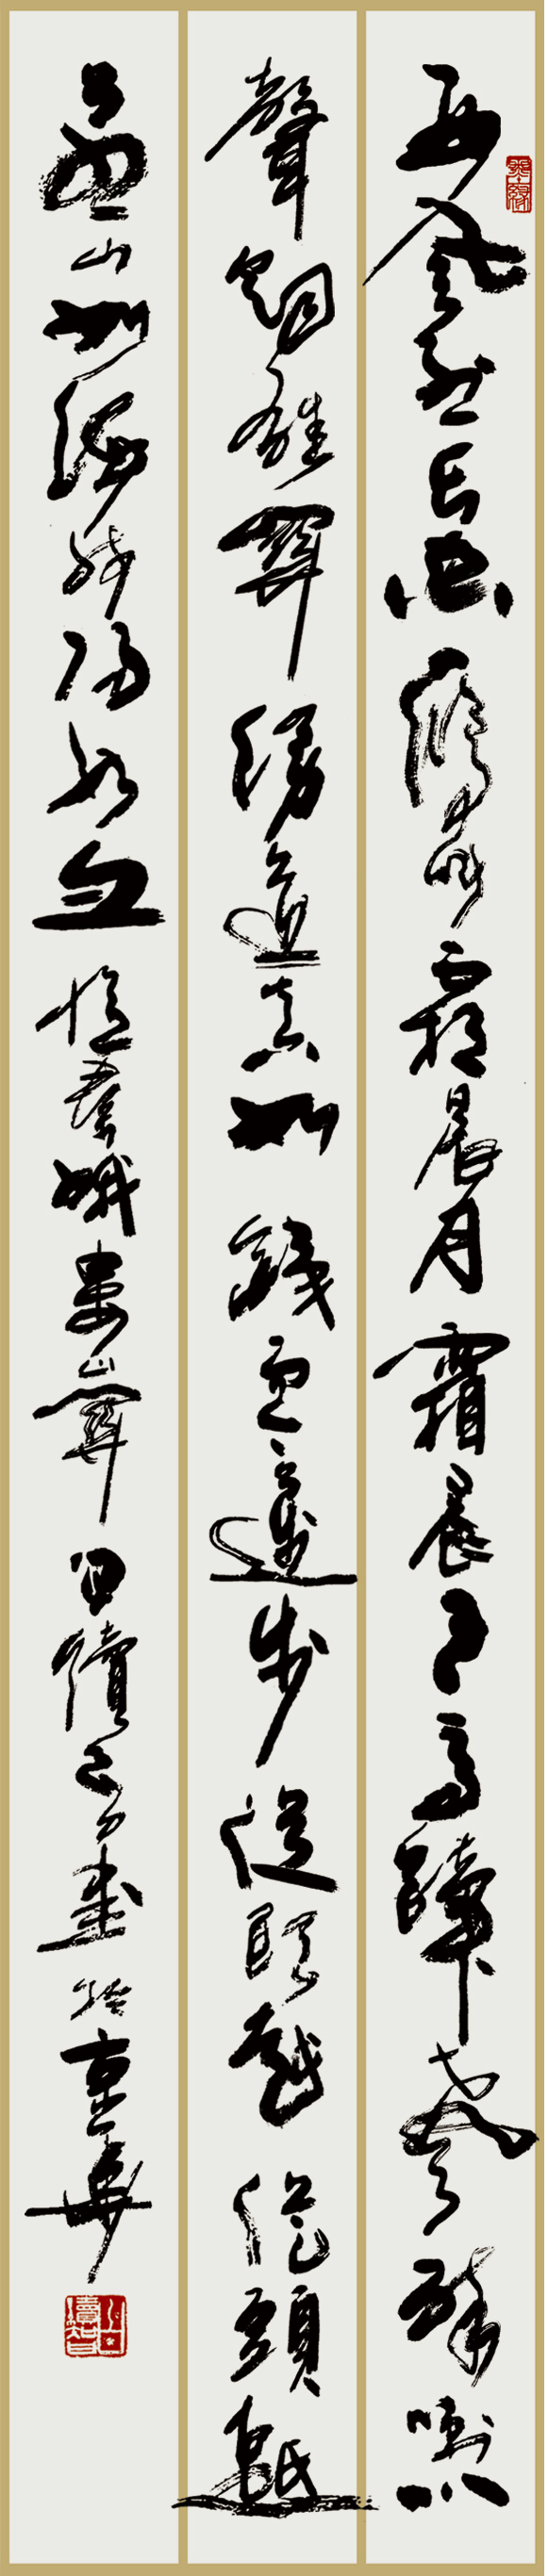 西風烈長空雁叫霜晨月霜晨月馬蹄聲碎喇叭
聲咽雄關漫道真如鐵而今邁步從頭越從頭越
蒼山如海殘陽如血憶秦娥婁山關書於京華